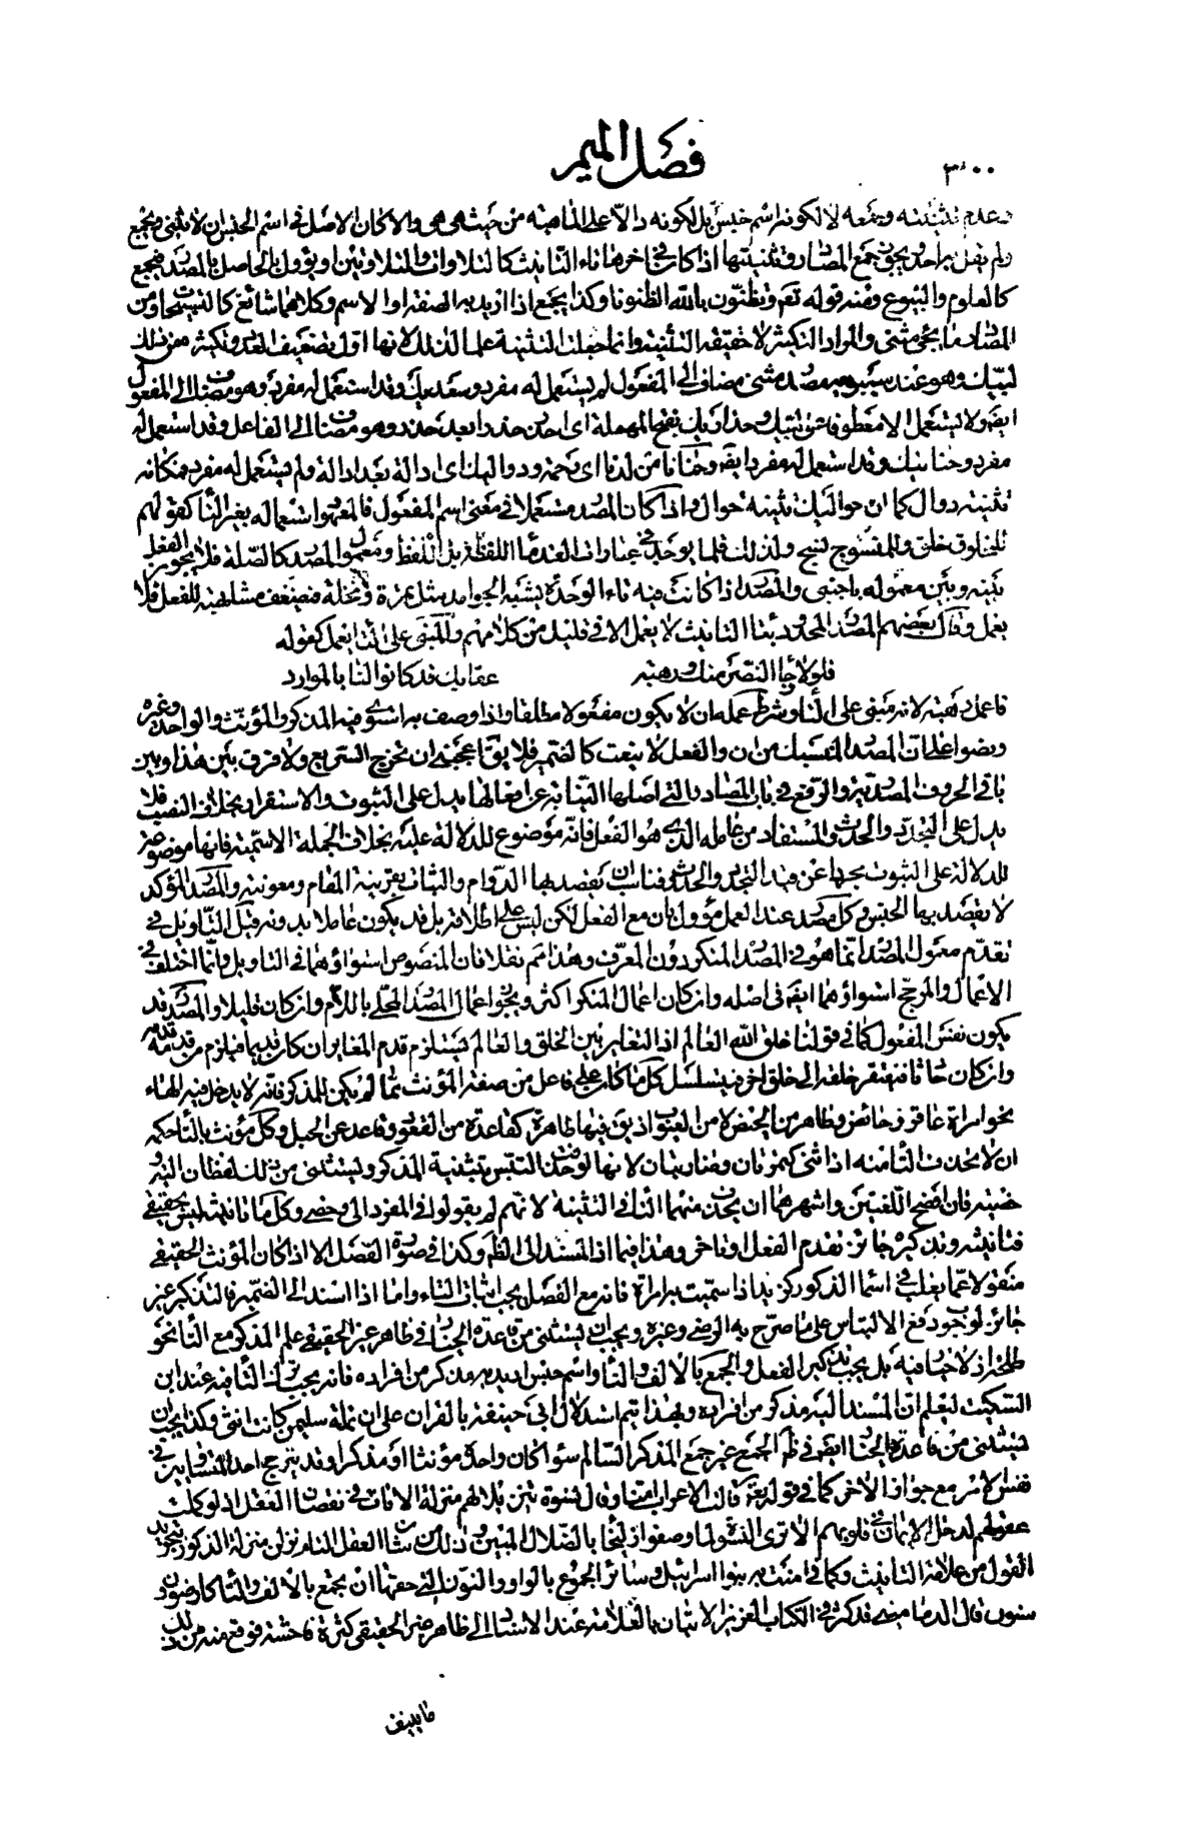 فصل الميم
٣٠٠
وعدم تثنيته وجمعه لا لكونه اسم جنس بل لكونه دالا على الماهية من حيث هي هي والا لكان الاصل في اسم الجنس ان لا يثنى ويجمع
ولم يقل به احد ويجوز جمع المصادر وتثنيتها اذا كان في اخرها تاء التانيث كالتلاوات والتلاوتين او يؤول بالحاصل بالمصدر فيجمع
كالعلوم والبيوع ومنه قوله تعم وتظنون بالله الظنونا وكذا يجمع اذا اريد به الصفة او الاسم وكلاهما شائع كالتسبيحات ومن
المصادر ما يجئ مثنى والمراد التكثير لا حقيقة التثنية وانما جعلت التثنية علما لذلك لانها اول تضعيف العدد وتكثيره فمن ذلك
لبيك وهو عند سيبويه مصدر مثنى مضاف الى المفعول لم يستعمل له مفرد وسعديك وقد استعمل له مفرد وهو مضاف الى المفعول
ايضا ولا يستعمل الا معطوفا على لبيك وحذاريك بفتح المهملة اي احذر حذرا بعد حذر وهو مضاف الى الفاعل وقد استعمل له
مفرد وحنانيك وقد استعمل له مفرد ايضا وحنانا من لدنا اي رحمة ودواليك اي ادالة بعد ادالة ولم يستعمل له مفرد فكانه
تثنية دوال كما ان حواليك تثنية حوال واذا كان المصدر مستعملا في معنى اسم المفعول فالمعهود استعماله بغير التا كقولهم
للمخلوق خلق وللمنسوج نسج ولذلك قلما يوجد في عبارات القدماء اللفظة بل اللفظ ومعمول المصدر كالصلة فلا يجوز الفصل
بينه وبين معموله باجنبي والمصدر اذا كانت فيه تاء الوحدة يشبه الجوامد مثل تمرة ونخلة فيضعف مشابهته للفعل فلا
يعمل وقال بعضهم المصدر المحدود بتا التانيث لا يعمل الا في قليل من كلامهم وللمبني على التا يعمل كقوله
فلولا رجا النصر منك ورهبة عقابك قد كانوا لنا بالموارد
فاعمل رهبة لانه مبني على التا وشرط عمله ان لا يكون مفعولا مطلقا واذا وصف به استوى فيه المذكر والمؤنث والواحد وغيره
ونصوا على ان المصدر المنسبك من ان والفعل لا ينعت كالضمير فلا يقال اعجبني ان تخرج السريع ولا فرق بين هذا وبين
باقي الحروف المصدرية والرفع في باب المصادر التي اصلها النيابة عن افعالها يدل على الثبوت والاستقرار بخلاف النصب فلا
يدل على التجدد والحدوث المستفاد من عامله الذي هو الفعل فانه موضوع للدلالة عليه بخلاف الجملة الاسمية فانها موضوعة
للدلالة على الثبوت مجردا عن قيد التجدد والحدوث فناسب ان يقصد بها الدوام والثبات بقرينة المقام ومعونته والمصدر المؤكد
لا يقصد بها الجنس وكل مصدر عند العمل مؤول بان مع الفعل لكن ليس على اطلاقه بل قد يكون عاملا بدونه وقيل التأويل في
تقدم معمول المصدر انما هو في المصدر المنكر دون المعرف وهذا لم نقلا فان المنصوص استواؤهما في التاويل وانما اختلف في
الاعمال والمرجح استواؤهما ايضا في اصله وان كان اعمال المنكر اكثر ويجوز اعمال المصدر المحلى باللام وان كان قليلا والمصدر قد
يكون نفس المفعول كما في قولنا خلق الله العالم اذ التغاير بين الخلق والعالم يستلزم قدم المغاير ان كان قديما فيلزم من قدمه قدمه
وان كان حادثا فيفتقر خلقه الى خلق اخر فيتسلسل كل ما كان على فاعل من صفة المؤنث مما لم يكن للمذكر فانه لا يدخل فيه الهاء
نحو امراة عاقر وحائض وطاهر من الحيض لا من العيوب اذ يق فيها طاهرة كقاعدة من القعود وقاعد عن الحبل وكل مؤنث بالتا حكمه
ان لا تحذف التا منه اذا ثنى كتمرتان وضاربتان لانها لو حذفت التبس بتثنية المذكر ويستثنى من ذلك لفظان الية و
خصية فان افصح اللغتين واشهرهما ان يحذف منهما التا في التثنية لانهم لم يقولوا في المفرد الي وخصي وكل ما تانيثه ليس بحقيقي
فتانيثه وتذكيره جائز تقدم الفعل او تاخر وهذا فيما اذا اسند الى الظاهر وكذا في صورة الفصل الا اذا كان المؤنث الحقيقي
منقولا عما يغلب في اسما الذكور كزيد اذا سميت به امراة فانه مع الفصل يجب اثبات التاء واما اذا اسند الى الضمير فالتذكير غير
جائز لوجود دفع الالتباس على ما صرح به الرضي وغيره ويجب ان يستثنى من قاعدة الجواز في ظاهر غير الحقيقي علم المذكر مع التا نحو
طلحة اذ لا خيار فيه بل يجب تذكير الفعل والجمع بالالف والتا واسم جنس اريد به مذكر من افراده فانه يجب ترك التا فيه عند ابن
السكيت ليعلم ان المسند اليه مذكر من افراده وبهذا يتم استدلال ابي حنيفة بالقران على ان نملة سليمن كانت انثى وكذا يجب ان
يستثنى من قاعدة الجواز ايضا في ظاهر الجمع غير جمع المذكر السالم سواء كان واحده مؤنثا او مذكرا وقد يترجح احد المتساويين في
نفس الامر مع جواز الاخر كما في قوله تعم قالت الاعراب امنا وقال نسوة تنزيلا لهم منزلة الاناث في نقصان العقل اذ لو كملت
عقولهم لدخل الايمان في قلوبهم الا ترى النسوة لما وصفوا زليخا بالضلال المبين وذلك من شان العقل التام نزلن منزلة الذكور بتجريد
القول من علامة التانيث وكما في امنت به بنوا اسرائيل وسائر الجموع بالواو والنون التي حقها ان يجمع بالالف والتا كارضون و
سنون قال الدماميني قد كثر في الكتاب العزيز الاتيان بالعلامة عند الاسناد الى ظاهر غير الحقيقي كثرة فاحشة فوقع منه من ذلك
ما ينيف